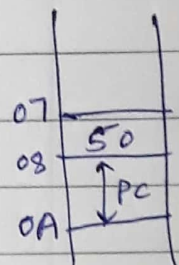 07
50
08
PC
0A